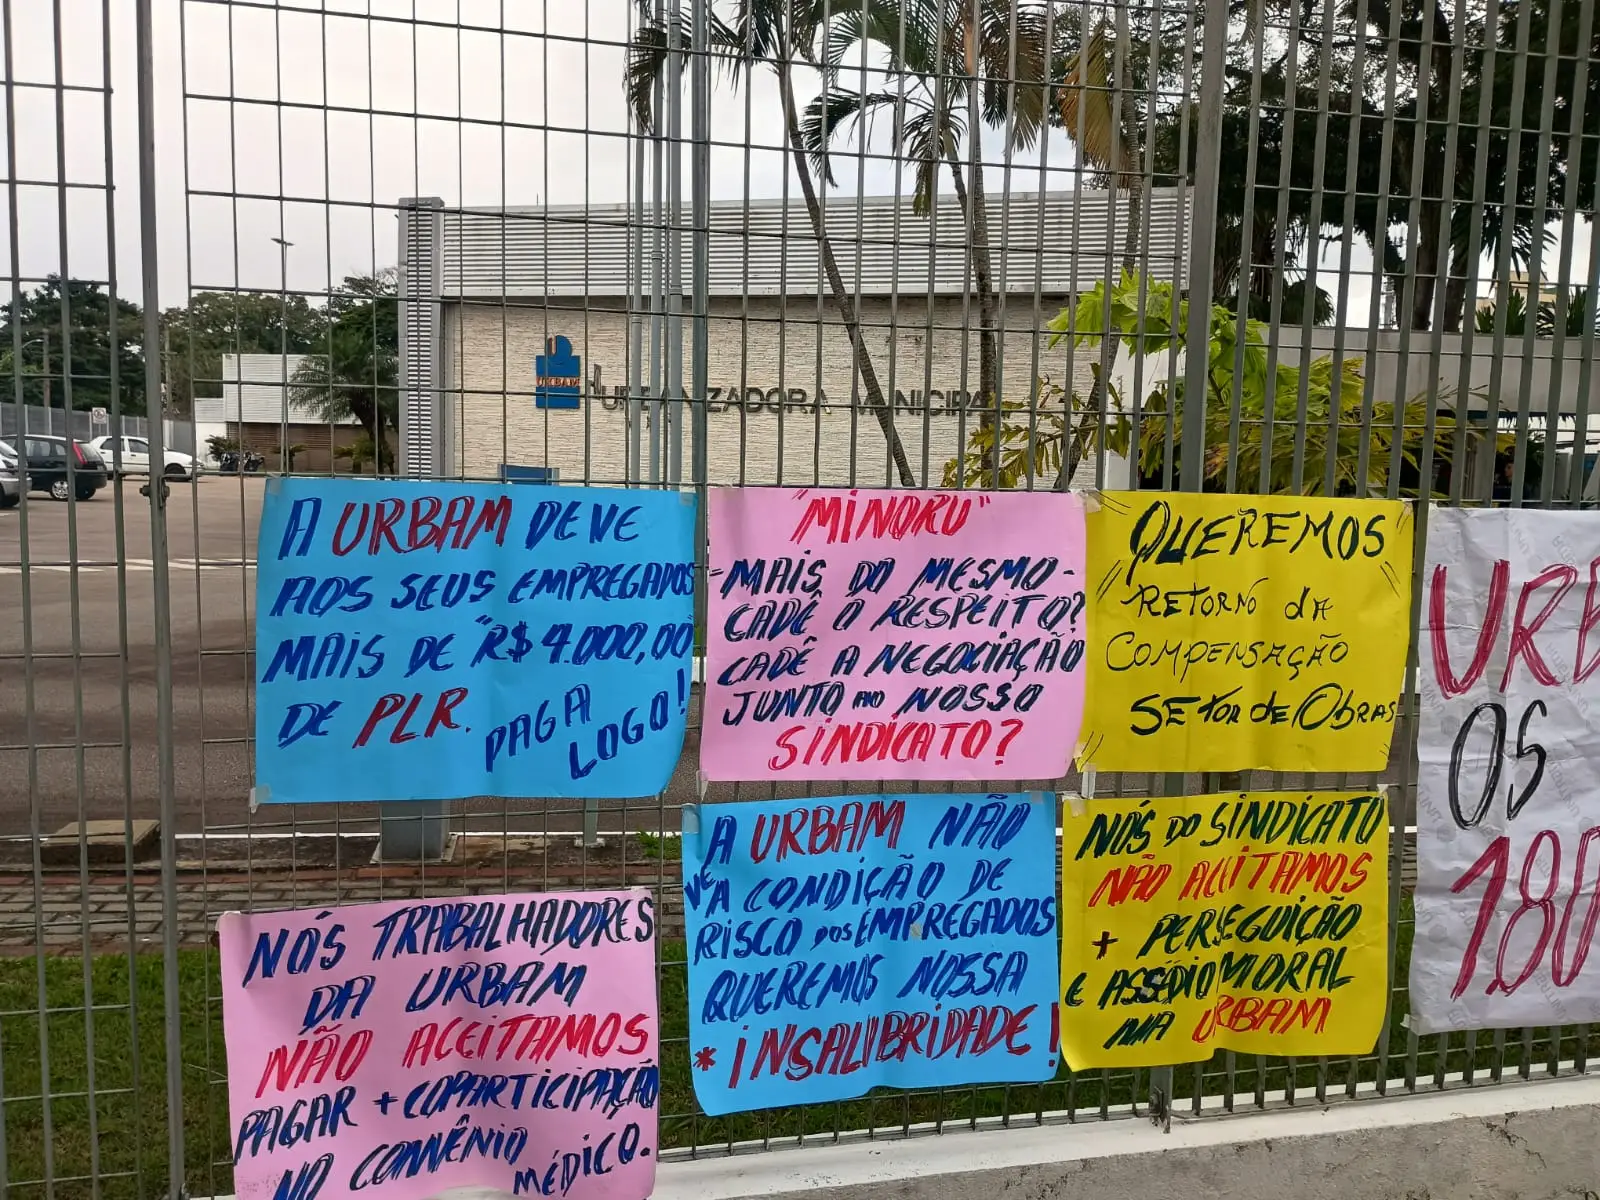 URBAM
URBANIZADORA MUNICIPA
A URBAM DEVE
AOS SEUS EMPREGADOS
MAIS DE "R$ 4.000,00
DE PLR. PAGA
LOGO!
"MINORU"
-MAIS DO MESMO-
CADÊ O RESPEITO?
CADÊ A NEGOCIAÇÃO
JUNTO AO NOSSO
SINDICATO?
"QUEREMOS"
RETORNO DA
COMPENSAÇÃO
SETOR DE OBRAS
URB
OS
180
NÓS TRABALHADORES
DA URBAM
NÃO ACEITAMOS
PAGAR + COPARTICIPAÇÃO
NO CONVÊNIO
MÉDICO.
A URBAM NÃO
VÊ A CONDIÇÃO DE
RISCO DOS EMPREGADOS
QUEREMOS NOSSA
* INSALUBRIDADE!
NÓS DO SINDICATO
NÃO ACEITAMOS
+ PERSEGUIÇÃO
E ASSÉDIO MORAL
NA URBAM